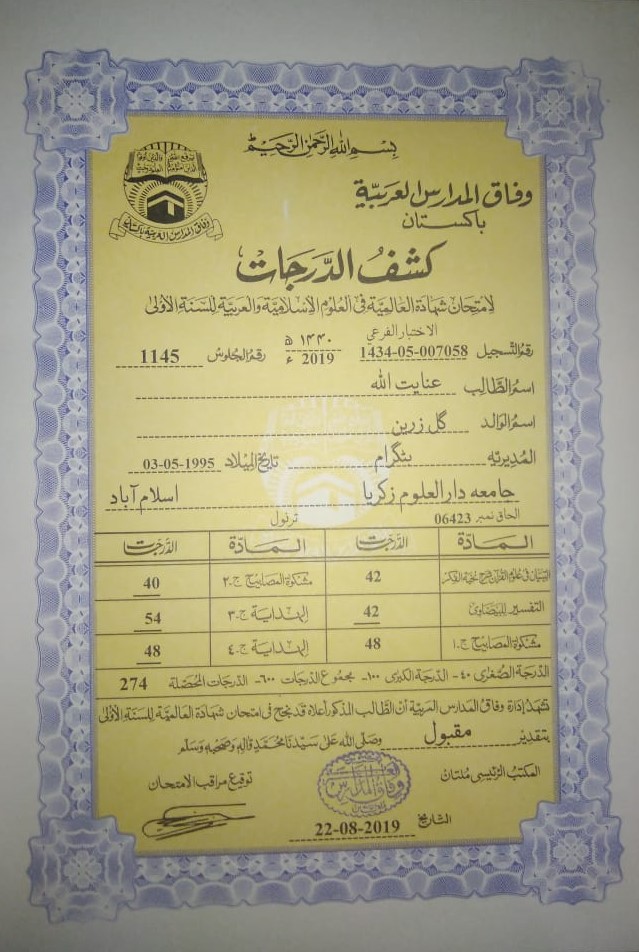 بسم الله الرحمن الرحيم
وفاق المدارس العربية
باكستان
وفاق المدارس العربية باكستان
كشف الدرجات
لامتحان شهادة العالمية في العلوم الاسلامية والعربية للسنة الأولى
الاختبار الفرعي
رقم التسجيل 1434-05-007058 ١٤٤٠ ھ 2019 ء رقم الجلوس 1145
اسم الطالب عنایت اللہ
اسم الوالد گل زرین
المديرية بٹگرام تاريخ الميلاد 03-05-1995
جامعه دارالعلوم زکریا اسلام آباد
الحاق نمبر 06423 ترنول
المادة الدرجات المادة الدرجات
التبيان في علوم القرآن شرح نخبة الفكر 42 مشكوة المصابيح ج.٢ 40
التفسير للبيضاوي 42 الهداية ج.٣ 54
مشكوة المصابيح ج.١ 48 الهداية ج.٤ 48
الدرجة الصغرى ٤٠- الدرجة الكبرى ١٠٠- مجموع الدرجات ٦٠٠- الدرجات المحصلة 274
تشهد إدارة وفاق المدارس العربية أن الطالب المذكور أعلاه قد نجح في امتحان شهادة العالمية للسنة الأولى
بتقدير مقبول وصلى الله على سيدنا محمد وآله وصحبه وسلم
المكتب الرئيسي ملتان توقيع مراقب الامتحان
وفاق المدارس
التاريخ 22-08-2019